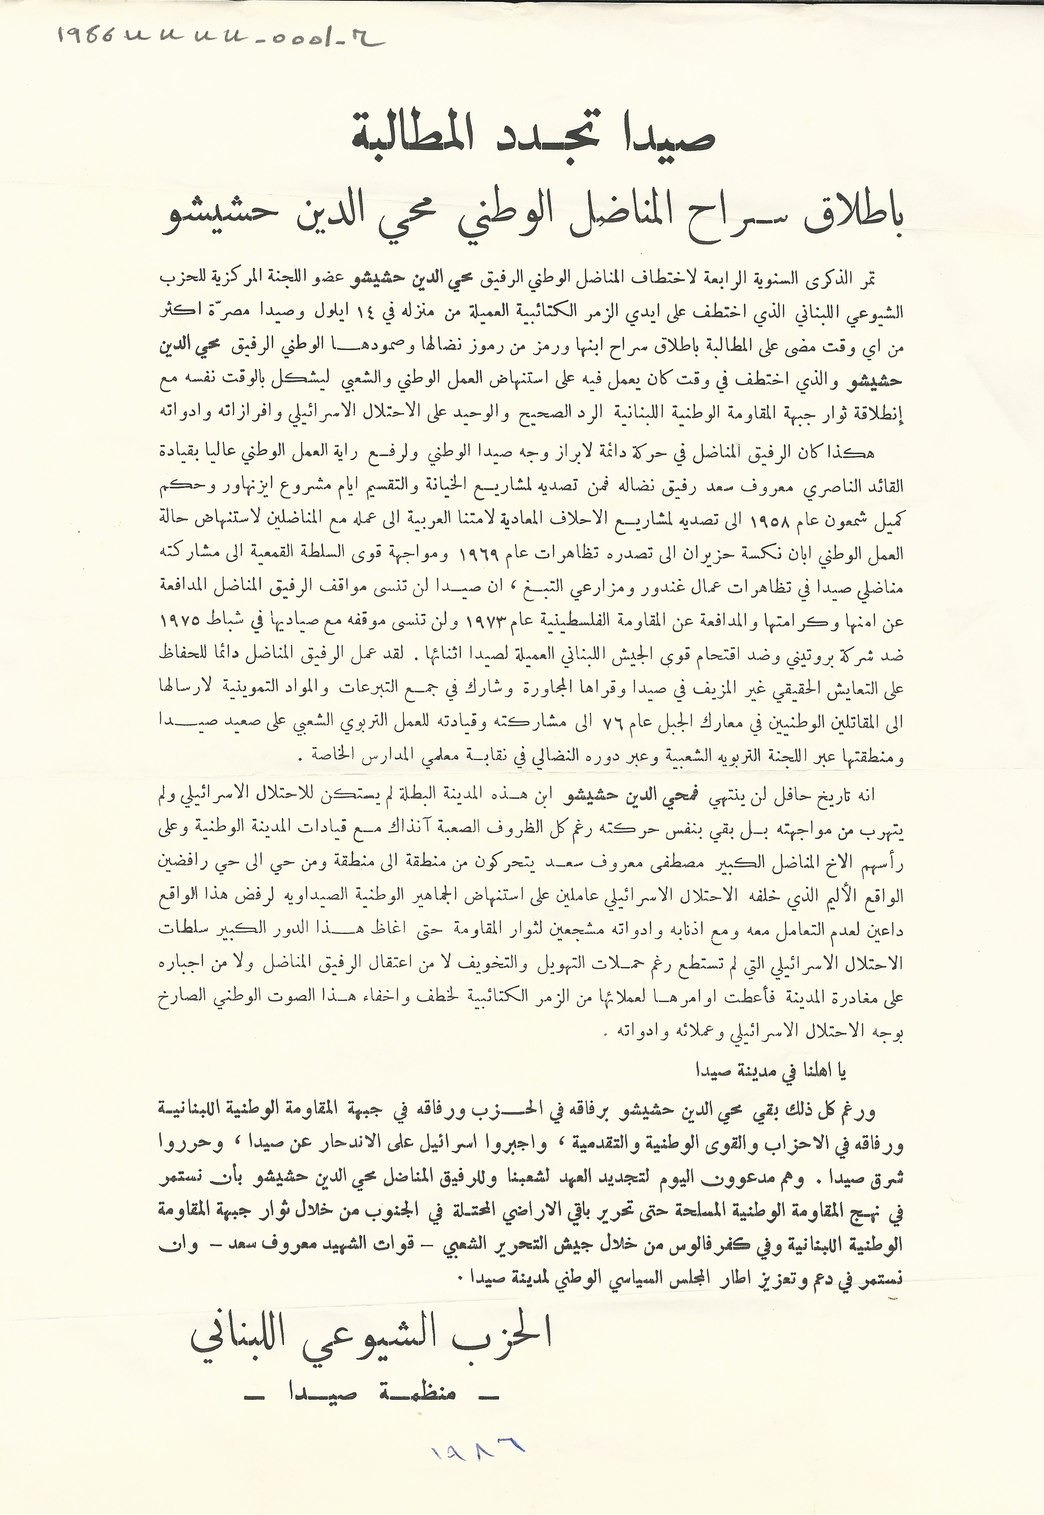 1986 uu uu uu - 0001 - 2
صيدا تجـدد المطالبة
باطلاق سراح المناضل الوطني محي الدين حشيشو
تمر الذكرى السنوية الرابعة لاختطاف المناضل الوطني الرفيق محي الدين حشيشو عضو اللجنة المركزية للحزب
الشيوعي اللبناني الذي اختطف على ايدي الزمر الكتائبية العميلة من منزله في ١٤ ايلول وصيدا مصرّة اكثر
من اي وقت مضى على المطالبة باطلاق سراح ابنها ورمز من رموز نضالها وصمودهـا الوطني الرفيق محي الدين
حشيشو والذي اختطف في وقت كان يعمل فيه على استنهاض العمل الوطني والشعبي ليشكل بالوقت نفسه مع
إنطلاقة ثوار جبهة المقاومة الوطنية اللبنانية الرد الصحيح والوحيد على الاحتلال الاسرائيلي وافرازاته وادواته
هكذا كان الرفيق المناضل في حركة دائمة لابراز وجه صيدا الوطني ولرفـع راية العمل الوطني عاليا بقيادة
القائد الناصري معروف سعد رفيق نضاله فمن تصديه لمشاريـع الخيانة والتقسيم ايام مشروع ايزنهاور وحكم
كميل شمعون عام ١٩٥٨ الى تصديه لمشاريـع الاحلاف المعادية لامتنا العربية الى عمله مع المناضلين لاستنهاض حالة
العمل الوطني ابان نكسة حزيران الى تصدره تظاهرات عام ١٩٦٩ ومواجهة قوى السلطة القمعية الى مشاركته
مناضلي صيدا في تظاهرات عمال غندور ومزارعي التبـغ ، ان صيـدا لن تنسى مواقف الرفيق المناضل المدافعة
عن امنها وكرامتها والمدافعة عن المقاومة الفلسطينية عام ١٩٧٣ ولن تنسى موقفه مع صياديها في شباط ١٩٧٥
ضد شركة بروتيني وضد اقتحام قوى الجيش اللبناني العميلة لصيدا اثنائها . لقد عمل الرفيق المناضل دائما للحفاظ
على التعايش الحقيقي غير المزيف في صيدا وقراها المجاورة وشارك في جمـع التبرعات والمواد التموينية لارسالها
الى المقاتلين الوطنيين في معارك الجبل عام ٧٦ الى مشاركته وقيادته للعمل التربوي الشعبي على صعيد صيـدا
ومنطقتها عبر اللجنة التربويه الشعبية وعبر دوره النضالي في نقابة معلمي المدارس الخاصة .
انه تاريخ حافل لن ينتهي فمحي الدين حشيشو ابن هـذه المدينة البطلة لم يستكن للاحتلال الاسرائيلي ولم
يتهرب من مواجهته بـل بقي بنفس حركته رغم كل الظروف الصعبة آنذاك مـع قيادات المدينة الوطنية وعلى
رأسهم الاخ المناضل الكبير مصطفى معروف سعـد يتحركون من منطقة الى منطقة ومن حي الى حي رافضين
الواقع الأليم الذي خلفه الاحتلال الاسرائيلي عاملين على استنهاض الجماهير الوطنية الصيداويه لرفض هذا الواقع
داعين لعدم التعامل معه ومع اذنابه وادواته مشجعين لثوار المقاومة حتى اغاظ هـذا الدور الكبير سلطات
الاحتلال الاسرائيلي التي لم تستطع رغم حمـلات التهويل والتخويف لا من اعتقال الرفيق المناضل ولا من اجباره
على مغادرة المدينة فأعطت اوامرهـا لعملائها من الزمر الكتائبية لخطف واخفاء هـذا الصوت الوطني الصارخ
بوجه الاحتلال الاسرائيلي وعملائه وادواته .
يا اهلنا في مدينة صيدا
ورغم كل ذلك بقي محي الدين حشيشو برفاقه في الحـزب ورفاقه في جبهة المقاومة الوطنية اللبنانيـة
ورفاقه في الاحزاب والقوى الوطنية والتقدمية ، واجبروا اسرائيل على الاندحار عن صيدا ، وحرروا
شرق صيدا . وهم مدعوون اليوم لتجديد العهد لشعبنا وللرفيق المناضل محي الدين حشيشو بأن نستمر
في نهـج المقاومة الوطنية المسلحة حتى تحرير باقي الاراضي المحتـلة في الجنوب من خلال ثوار جبهة المقاومة
الوطنية اللبنانية وفي كفرفالوس من خلال جيش التحرير الشعبي – قوات الشهيد معروف سعد – وان
نستمر في دعم وتعزيز اطار المجلس السياسي الوطني لمدينة صيدا .
الحزب الشيوعي اللبناني
– منظمـة صيـدا –
١٩٨٦